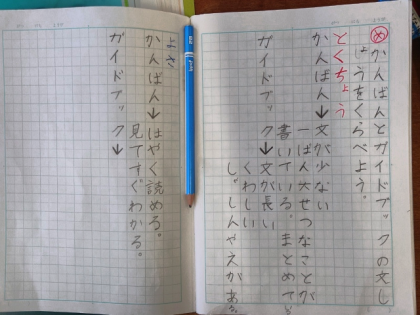 め かんばんとガイドブックの文し
ょうをくらべよう。
とくちょう
かんばん→文が少ない
一ばん大せつなことが
書いている。まとめて
ガイドブック→文が長い
くわしい
しゃしんやえがあ
よさ
かんばん→はやく読める。
見てすぐわかる。
ガイドブック→